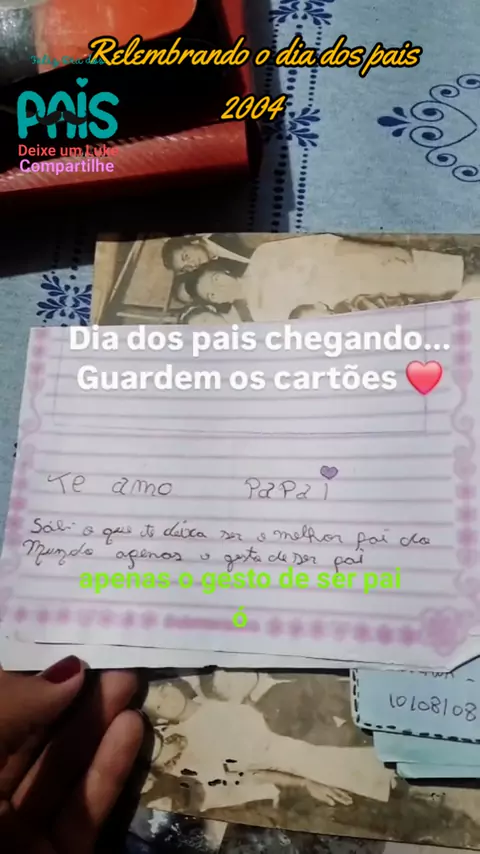 Relembrando o dia dos pais
2004
Feliz dia dos
PAIS
Deixe um Like
Compartilhe
Dia dos pais chegando...
Guardem os cartões ❤️
Te amo PaPai
o que te deixa ser o melhor pai do
Mundo apenas o gesto de ser pai
apenas o gesto de ser pai
6
10/08/08